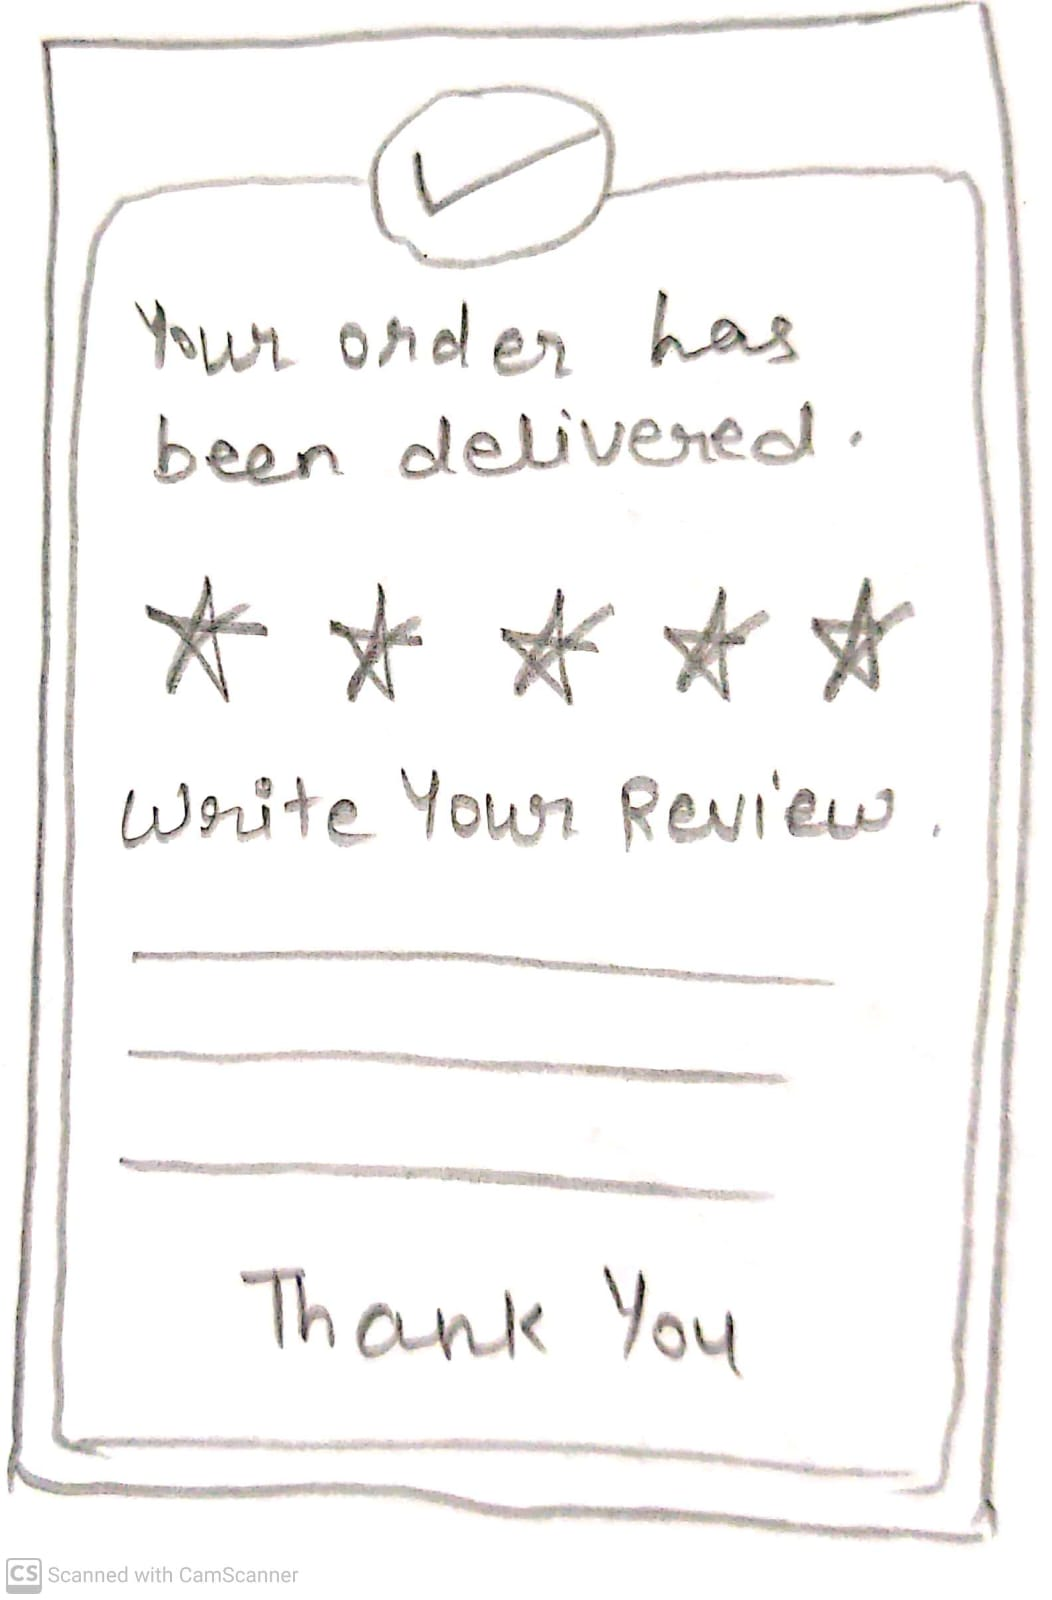 Your order has
been delivered.
Write Your Review.
Thank You
CS Scanned with CamScanner